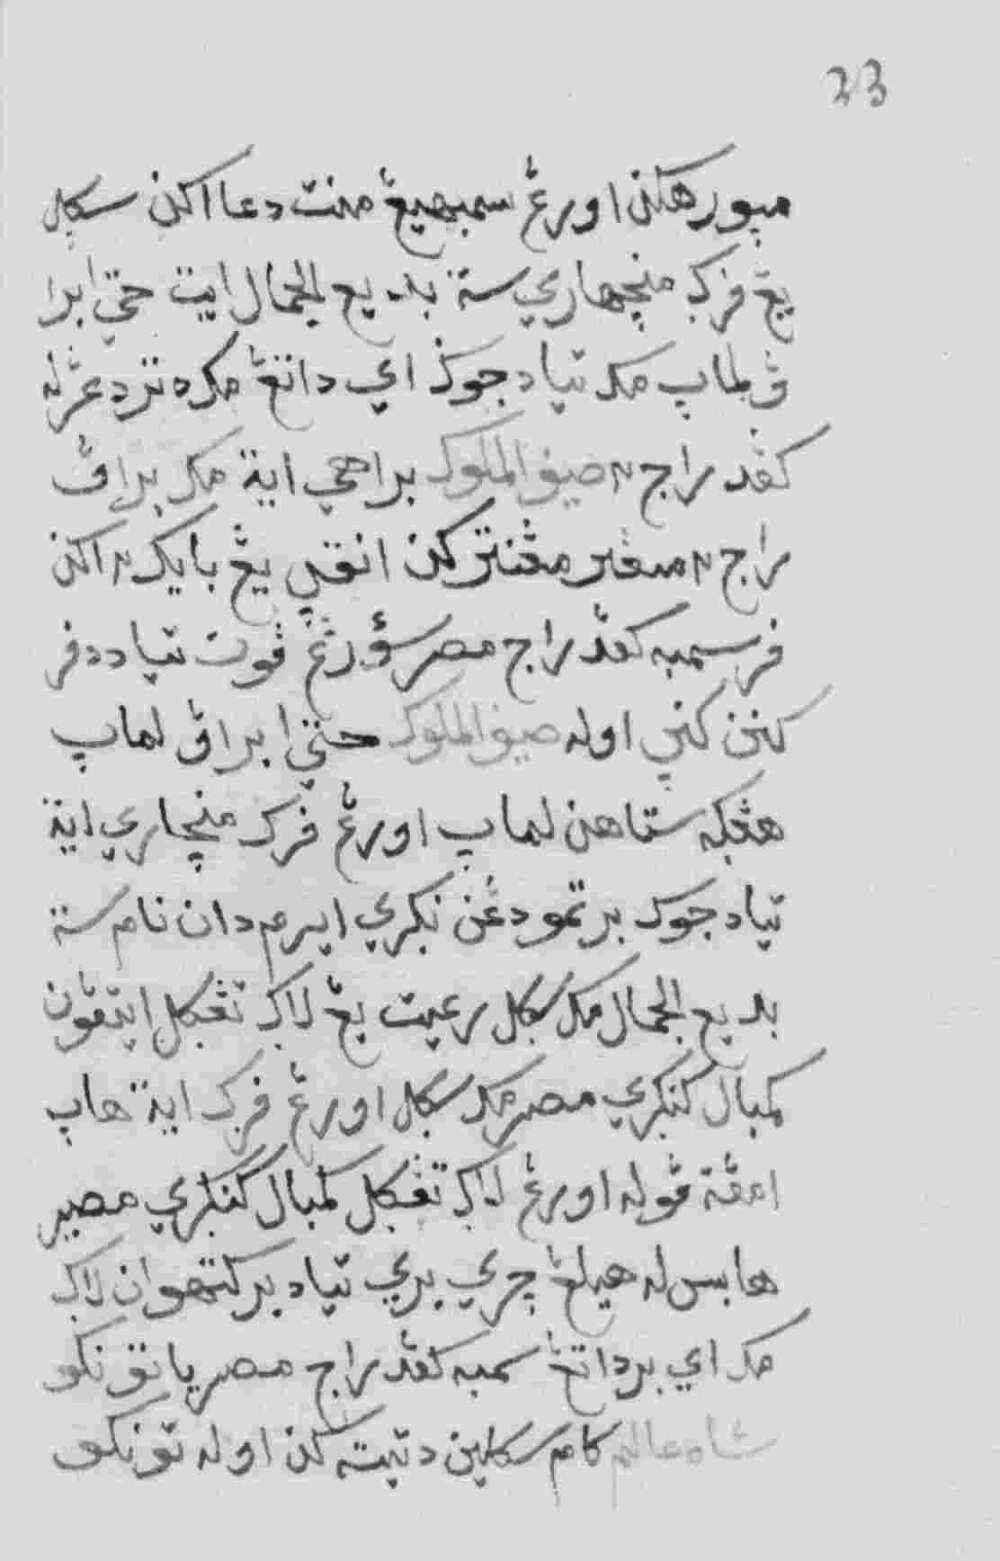 33
مپوره‌كن اورڠ سمبهيڠ منت دعا اكن سكل
يڠ فرݢ منچهاري ستة بديع الجمال ايت حتي ابرا
ڤ لماپ مک تياد جوݢ اي داتڠ مک دتردڠرله
كڤد راج٢ صيف الملوک براهي اية مک براڤ
راج٢ مڠنتركن انقپ يڠ بايک٢ اكن
فرسمبه كڤد راج مصر سؤرڠ ڤوت تياد دفر
كننكنپ اوله صيف الملوک حتي ابراڤ لماپ
هڠݢ ستاهن لماپ اورڠ فرݢ منچاري اية
تياد جوݢ برتمو دڠن نݢري ايرم دان نام ستة
بديع الجمال مک سݢل رعيت يڠ لاݢ تڠݢل ايتڤون
كمبال كنݢري مصر مک سݢل اورڠ فرݢ اية هاپ
امڤة ڤوله اورڠ لاݢ تڠݢل كمبال كنݢري مصير
هابسله هيلڠ چري بري تياد بركتهوان لاݢ
مک اي برداتڠ سمبه كڤد راج مصر يا توانكو
شاه عالم كام سكلين دتيتهكن اوله توانكو